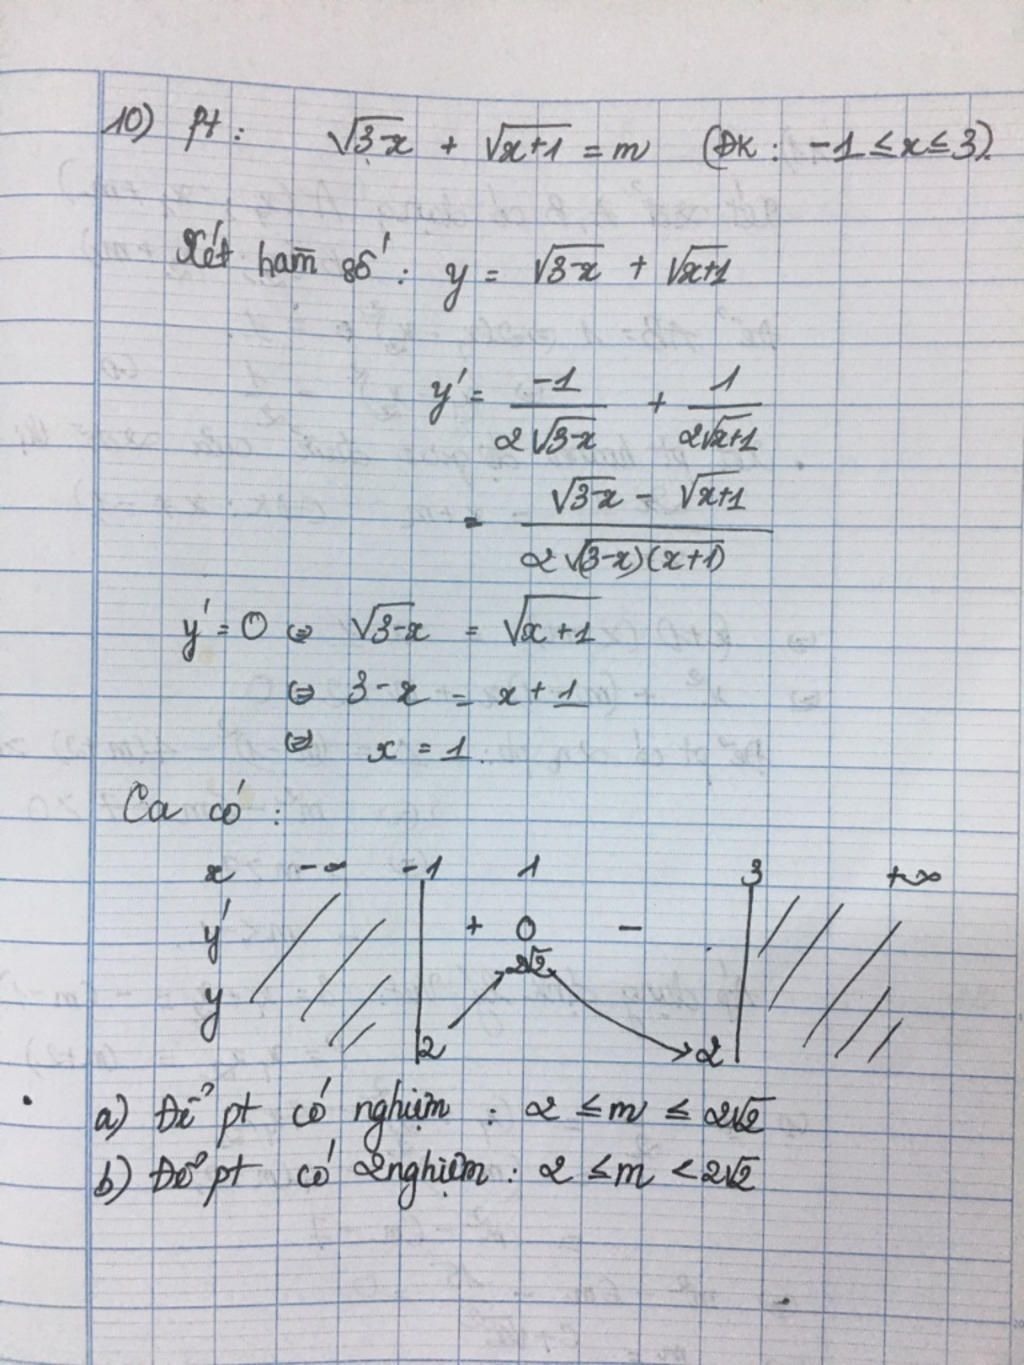 10) pt : √3-x + √x+1 = m (ĐK : -1 ≤ x ≤ 3).
Xét hàm số : y = √3-x + √x+1
y' = -1/2√3-x + 1/2√x+1
= √3-x - √x+1 / 2√(3-x)(x+1)
y' = 0 ⇔ √3-x = √x+1
⇔ 3-x = x+1
⇔ x = 1.
Ta có :
x -∞ -1 1 3 +∞
y' + 0 -
y 2 2√2 2
a) Để pt có nghiệm : 2 ≤ m ≤ 2√2
b) Để pt có 2 nghiệm : 2 ≤ m < 2√2